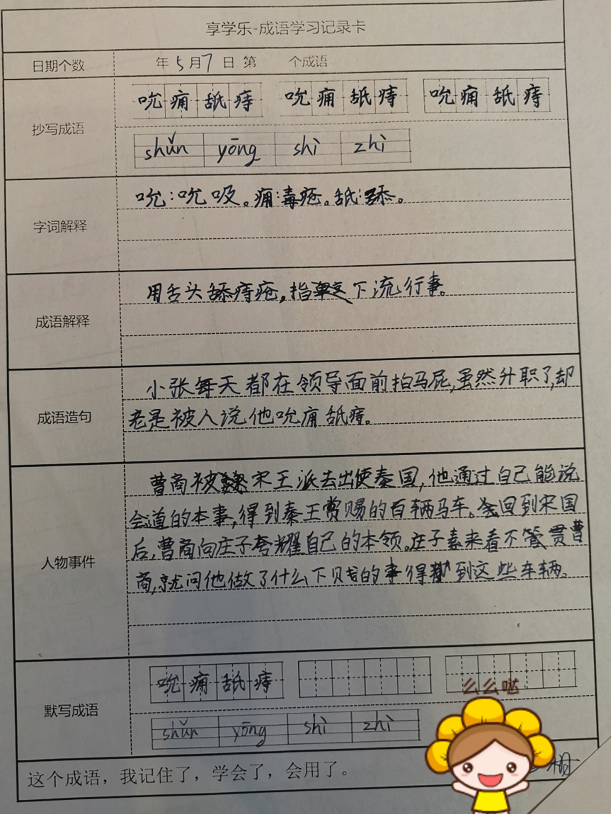 享学乐-成语学习记录卡
日期个数 年5月7日 第 个成语
抄写成语 吮痈舐痔 吮痈舐痔 吮痈舐痔
shǔn yōng shì zhì
字词解释 吮:吮吸。痈:毒疮。舐:舔。
成语解释 用舌头舔痔疮,指下流行事。
成语造句 小张每天都在领导面前拍马屁,虽然升职了,却
老是被人说他吮痈舐痔。
人物事件 曹商被宋王派去出使秦国,他通过自己能说
会道的本事,得到秦王赏赐的百辆马车。回到宋国
后,曹商向庄子夸耀自己的本领。庄子素来看不惯曹
商,就问他做了什么下贱的事得到这些车辆。
默写成语 吮痈舐痔
shǔn yōng shì zhì
么么哒
这个成语,我记住了,学会了,会用了。